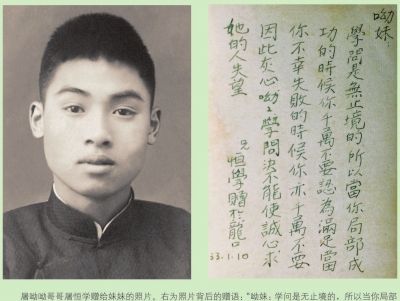 呦妹
學問是無止境的所以當你局部成
功的時候你千萬不要認為滿足當
你不幸失敗的時候你亦千萬不要
因此灰心呦〻學問決不能使誠心求
她的人失望
兄 恒學贈於龍口
33.1.10
屠呦呦哥哥屠恒学赠给妹妹的照片，右为照片背后的赠语：“呦妹：学问是无止境的，所以当你局部